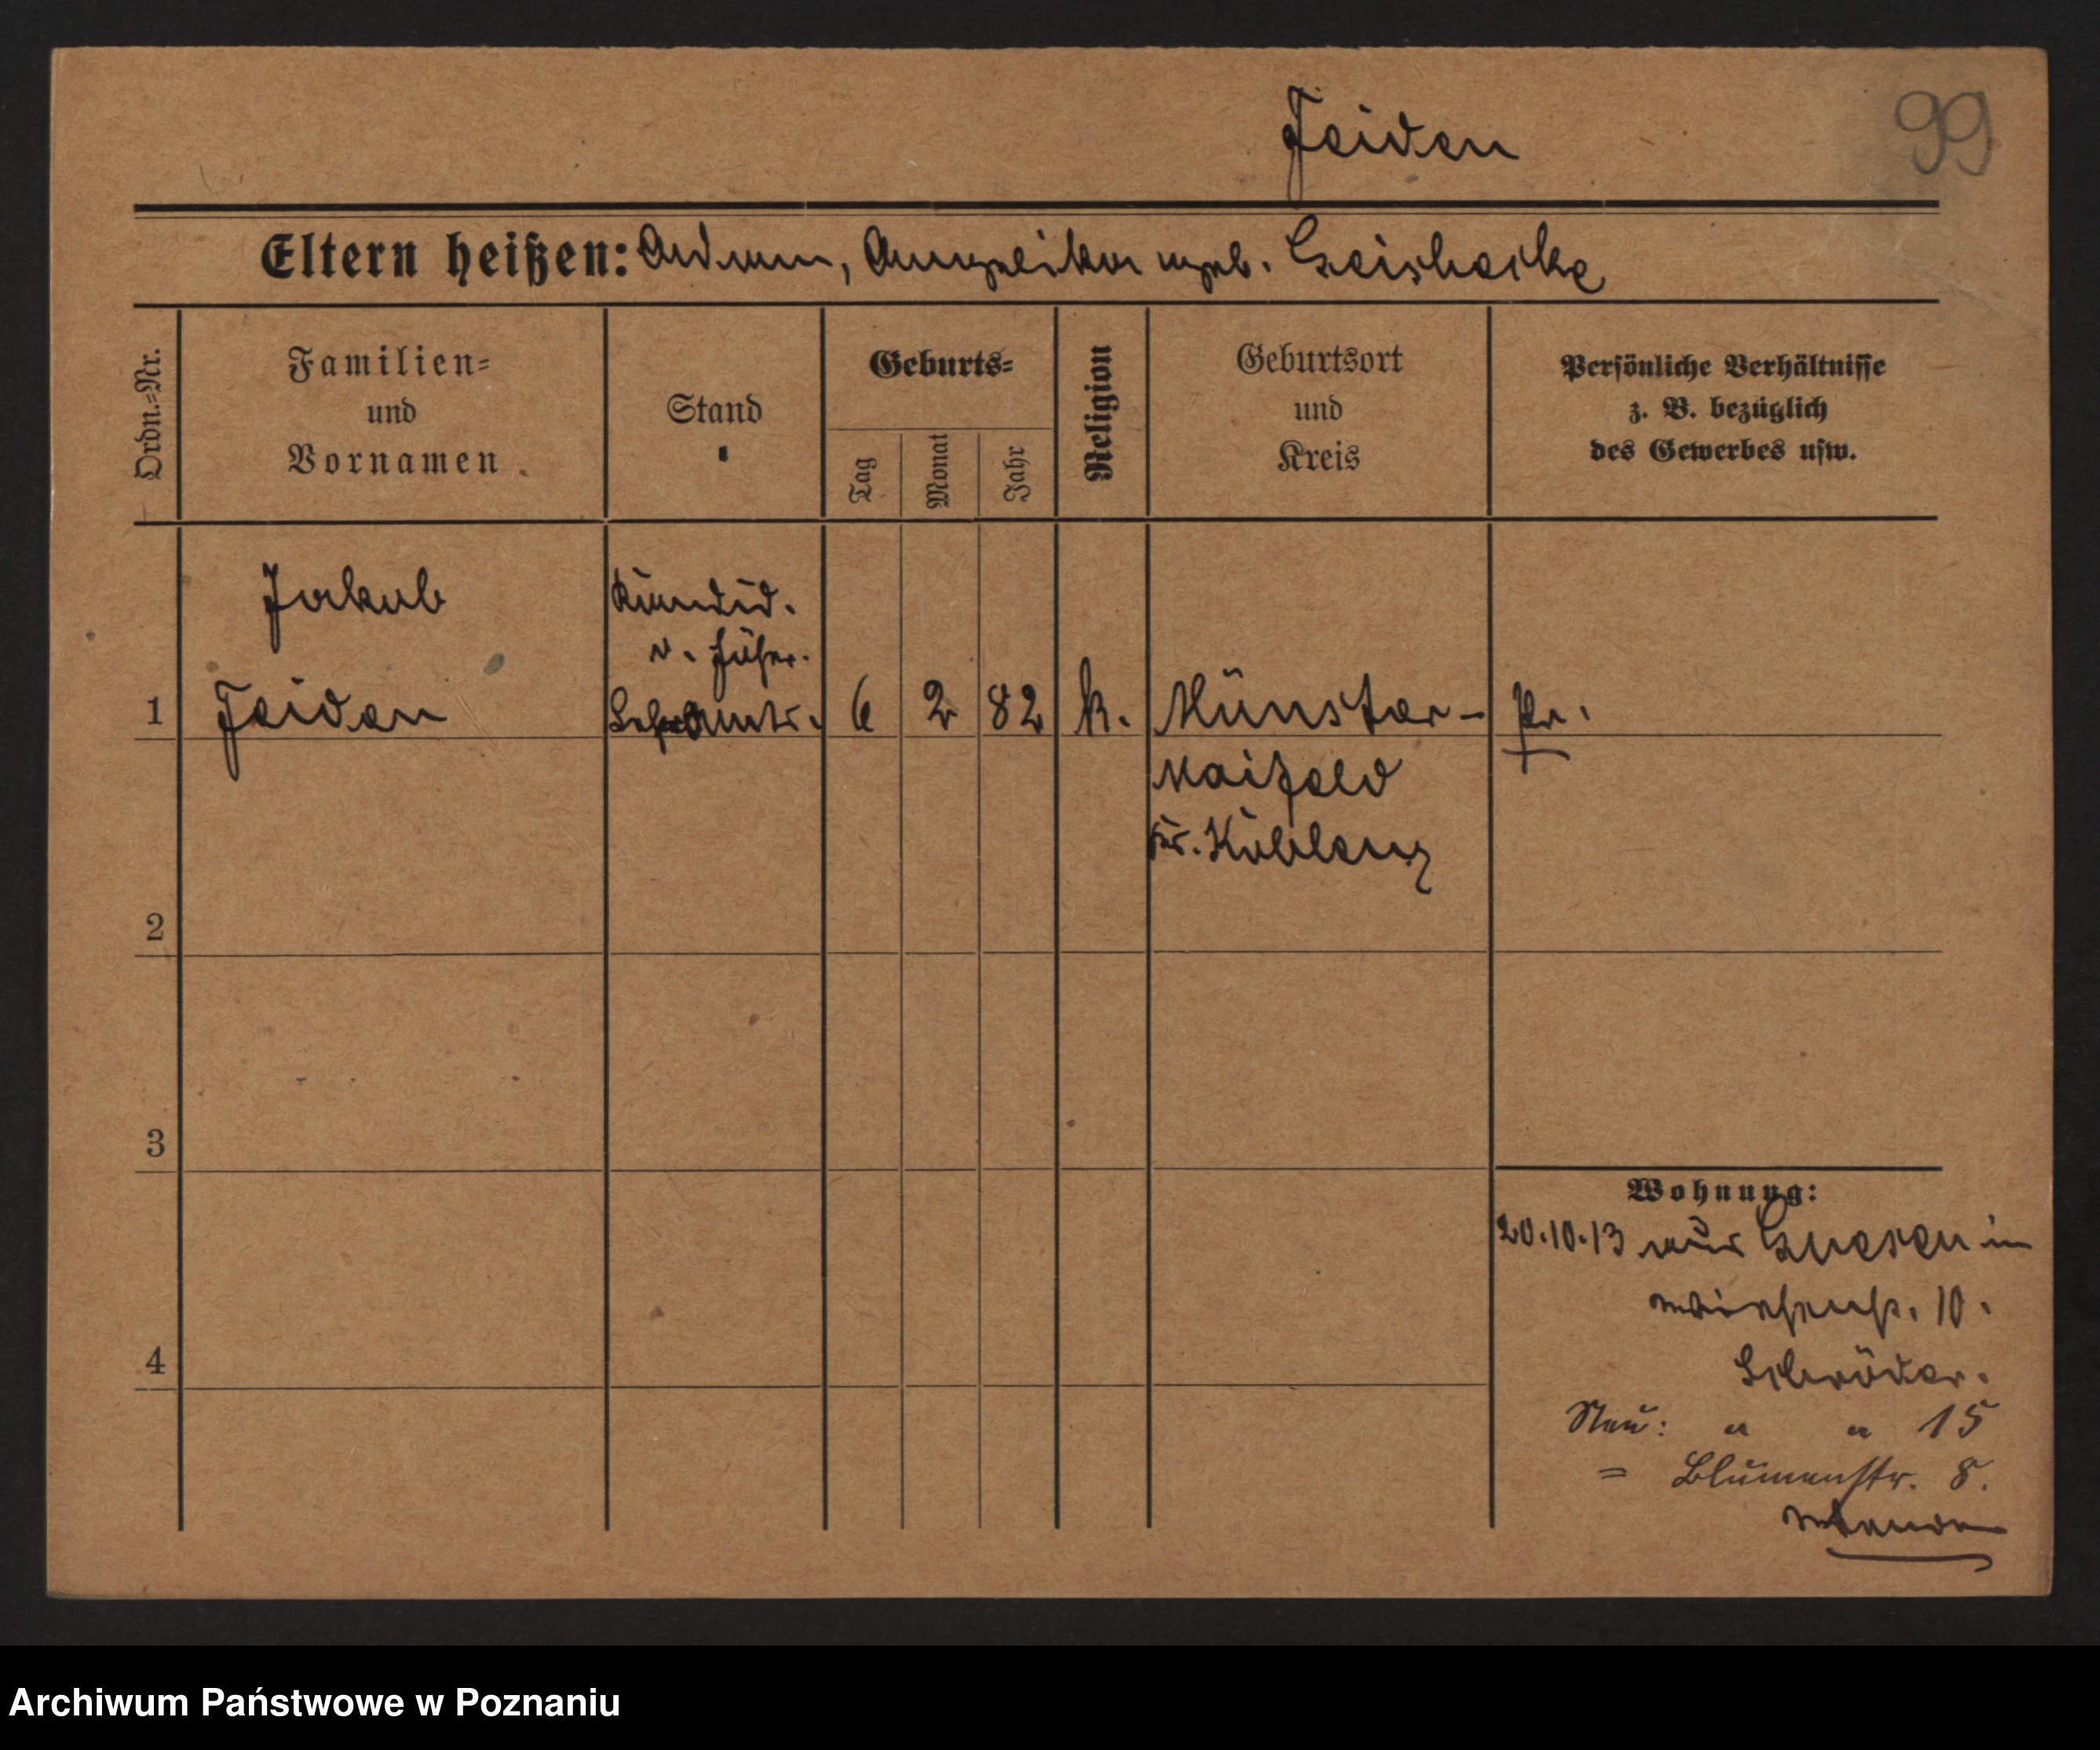 Feiden
99
Eltern heißen: Adam, Angelika geb. Geishecke
Ordn.-Nr.
Familien-
und
Vornamen
Stand
Geburts-
Tag
Monat
Jahr
Religion
Geburtsort
und
Kreis
Persönliche Verhältnisse
z. B. bezüglich
des Gewerbes usw.
Jakob
Kandid.
d. höher.
1 Feiden Lehramts. 6 2 82 k. Münster- Pr.
Maifeld
Kr. Koblenz
2
3
4
Wohnung:
20.10.13 aus Gnesen in
10.
Schröder.
Neu: " " 15
= Blumenstr. 8.
Archiwum Państwowe w Poznaniu